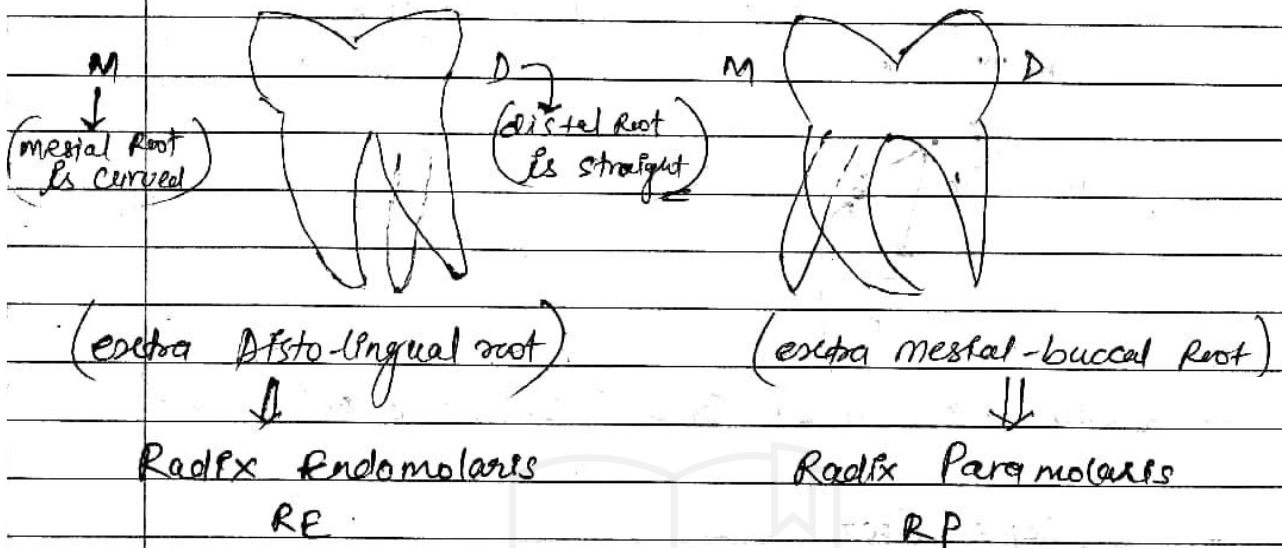 M D M D
(mesial Root (distal Root
is curved) is straight)
(extra Disto-lingual root) (extra mesial-buccal Root)
Radix Endomolaris Radix Paramolaris
RE RP